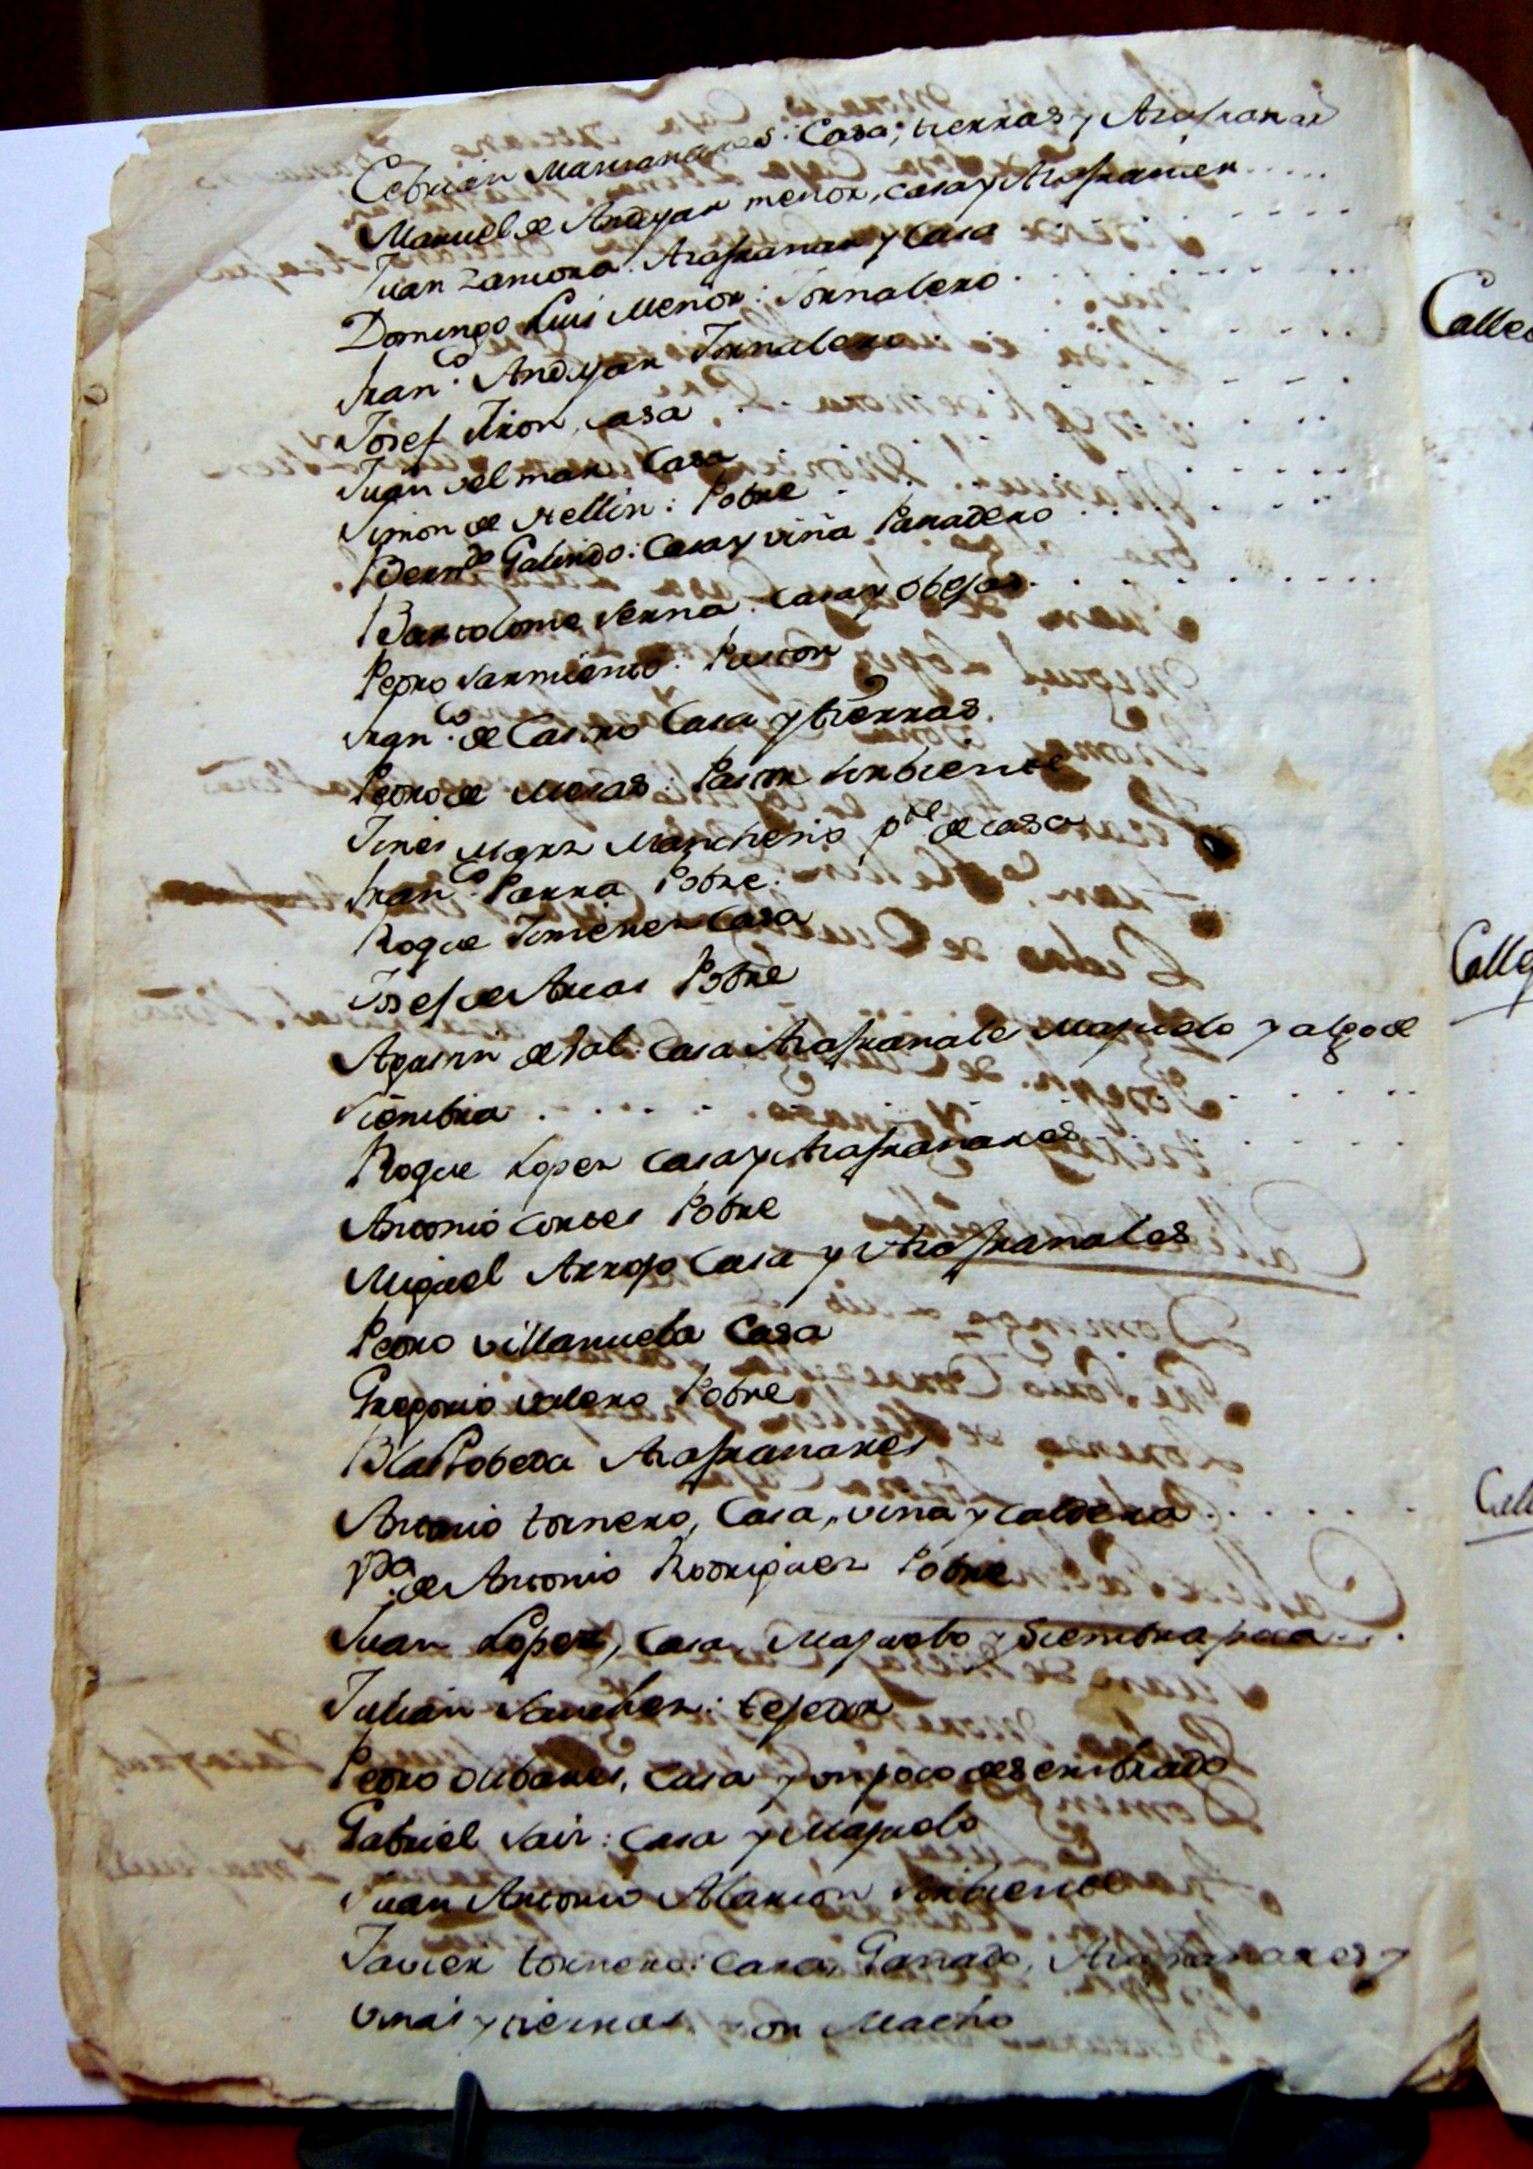 Cebrian Manzanares: Casa, tierras y Azafranar
Manuel de Anduxar menor, casa y Azafranar
Juan Zamora: Azafranar y Casa
Domingo Luis Menor: Jornalero
Fran.co Anduxar Jornalero
Josef Jiron, casa
Juan del mar Casa
Simon de Hellin: Pobre
Bern.do Galindo: Casa y viña Panadero
Bartolome Serna: casa y obejas
Pedro Sarmiento: Pastor
Fran.co de Castro Casa y tierras
Pedro de Moras: Pastor sirbiente
Jines Marz Mancheño p.te de casa
Fran.co Parra Pobre.
Roque Jimenez Casa
Josef de Arcas Pobre
Agustin de Sal: Casa Azafranales Majuelo y algo de
siembra
Roque Lopez Casa y Azafranares
Antonio Cortes Pobre
Miguel Arroyo Casa y Azafranales
Pedro Villanueba Casa
Gregorio Valero Pobre
Blas Pobeda Azafranares
Antonio tornero, Casa, viña y caldera
V.da de Antonio Rodriguez Pobre
Juan Lopez, Casa, Majuelo y Siembra poca
Julian Sanchez: tejedor
Pedro Olibares, Casa y un poco de sembrado
Gabriel Saiz: Casa y Majuelo
Juan Antonio Alarcon Sirbiente
Javier tornero: Casa, Ganado, Azafranares y
viñas y tierras con Macho
Calle
Calle
Calle